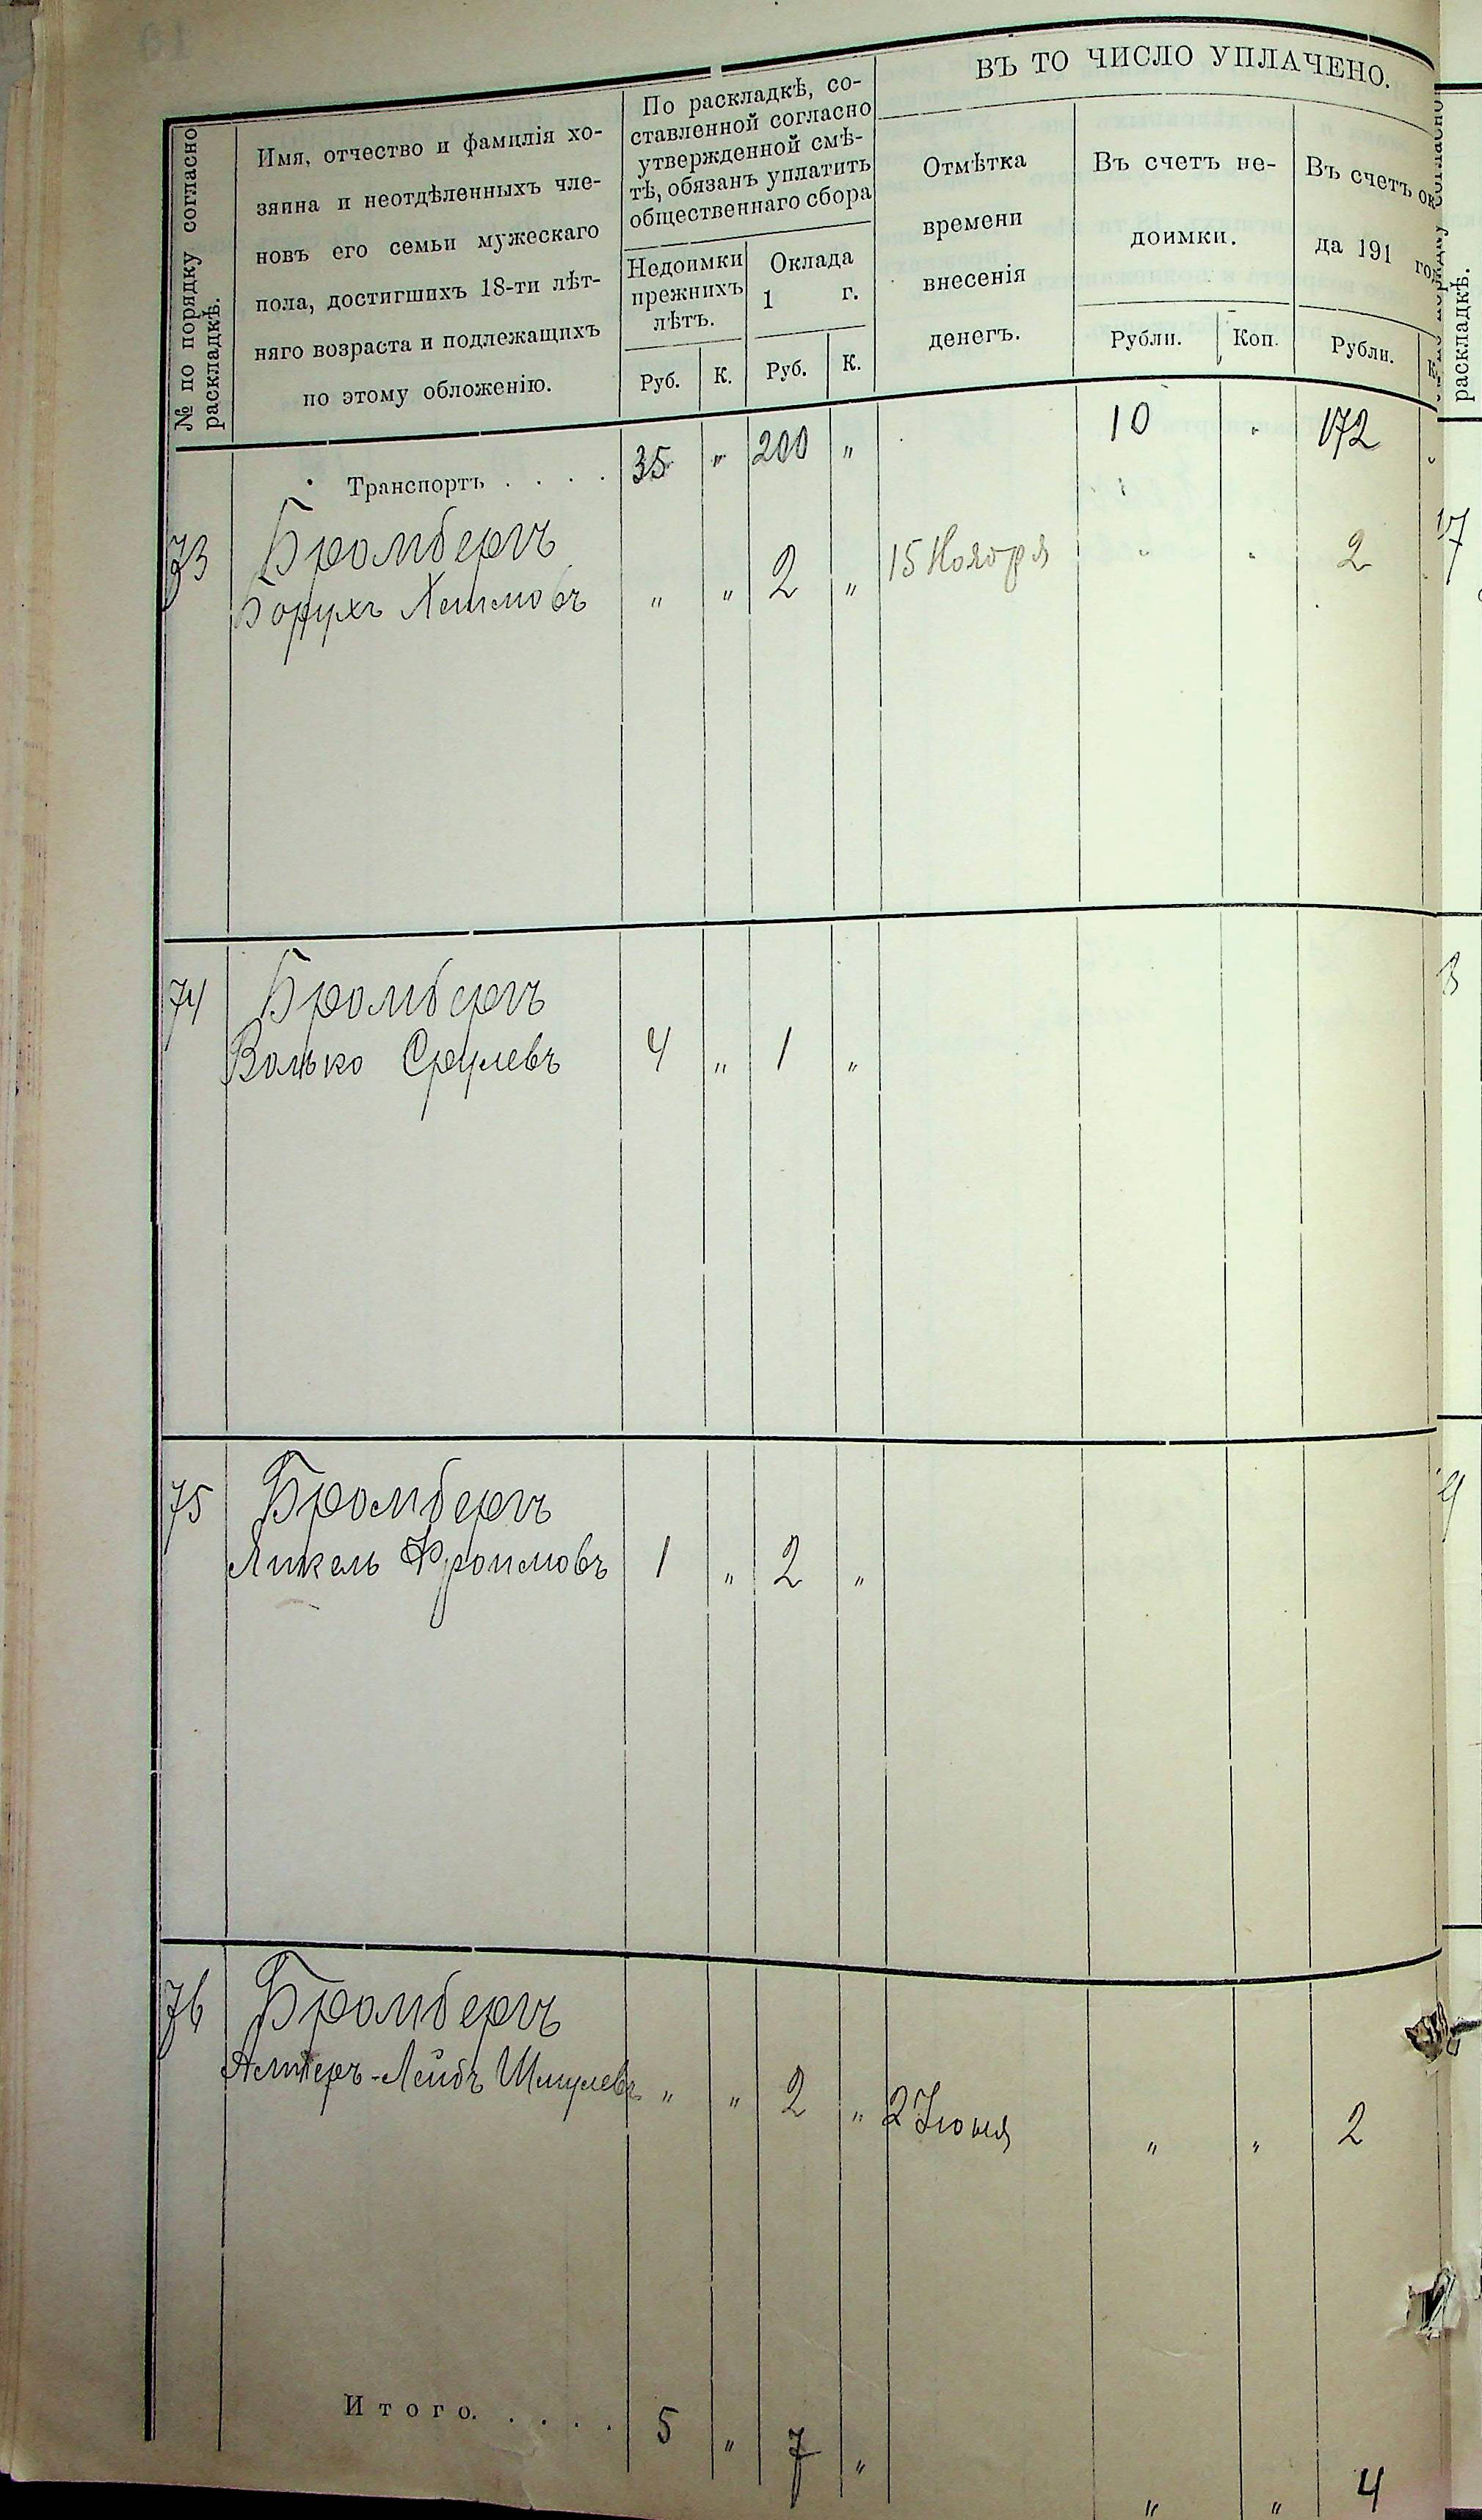 № по порядку согласно раскладкѣ.
Имя, отчество и фамилія хо-
зяина и неотдѣленныхъ чле-
новъ его семьи мужескаго
пола, достигшихъ 18-ти лѣт-
няго возраста и подлежащихъ
по этому обложенію.
По раскладкѣ, со-
ставленной согласно
утвержденной смѣ-
тѣ, обязанъ уплатить
общественнаго сбора
Недоимки
прежнихъ
лѣтъ.
Оклада
1 г.
Руб. К. Руб. К.
ВЪ ТО ЧИСЛО УПЛАЧЕНО.
Отмѣтка
времени
внесенія
денегъ.
Въ счетъ не-
доимки.
Рубли. Коп.
Въ счетъ ок
да 191 год
Рубли. К.
Транспортъ . . . . 35 „ 200 „ 10 „ 172
73 Бромбергъ
Борухъ Хаимовъ „ „ 2 „ 15 Ноября „ „ 2
74 Бромбергъ
Волько Срулевъ 4 „ 1 „
75 Бромбергъ
Янкель Фроимовъ 1 „ 2 „
76 Бромбергъ
Алтеръ-Лейбъ Шмулевъ „ „ 2 „ 2 Іюня „ „ 2
Итого. . . . . 5 „ 7 „ „ „ 4
раскладкѣ.